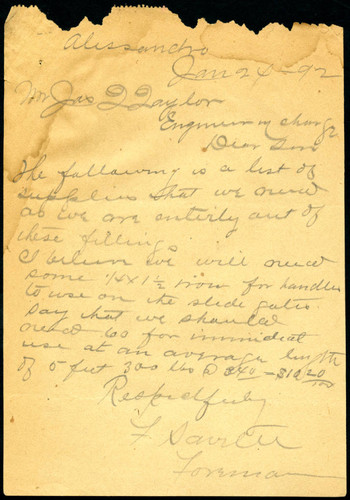 Alessandro
Jan 24 - 92
Mr Jas T Taylor
Engineer in charge
Dear Sir
The following is a list of
supplies that we need
as we are entirly out of
these fittings
I beleive we will need
some 1/4 x 1 1/2 iron for handles
to use on the slide gates
say that we should
need 60 for immidiat
use at an average length
of 5 feet 300 lbs @
Respectfully
F
Foreman